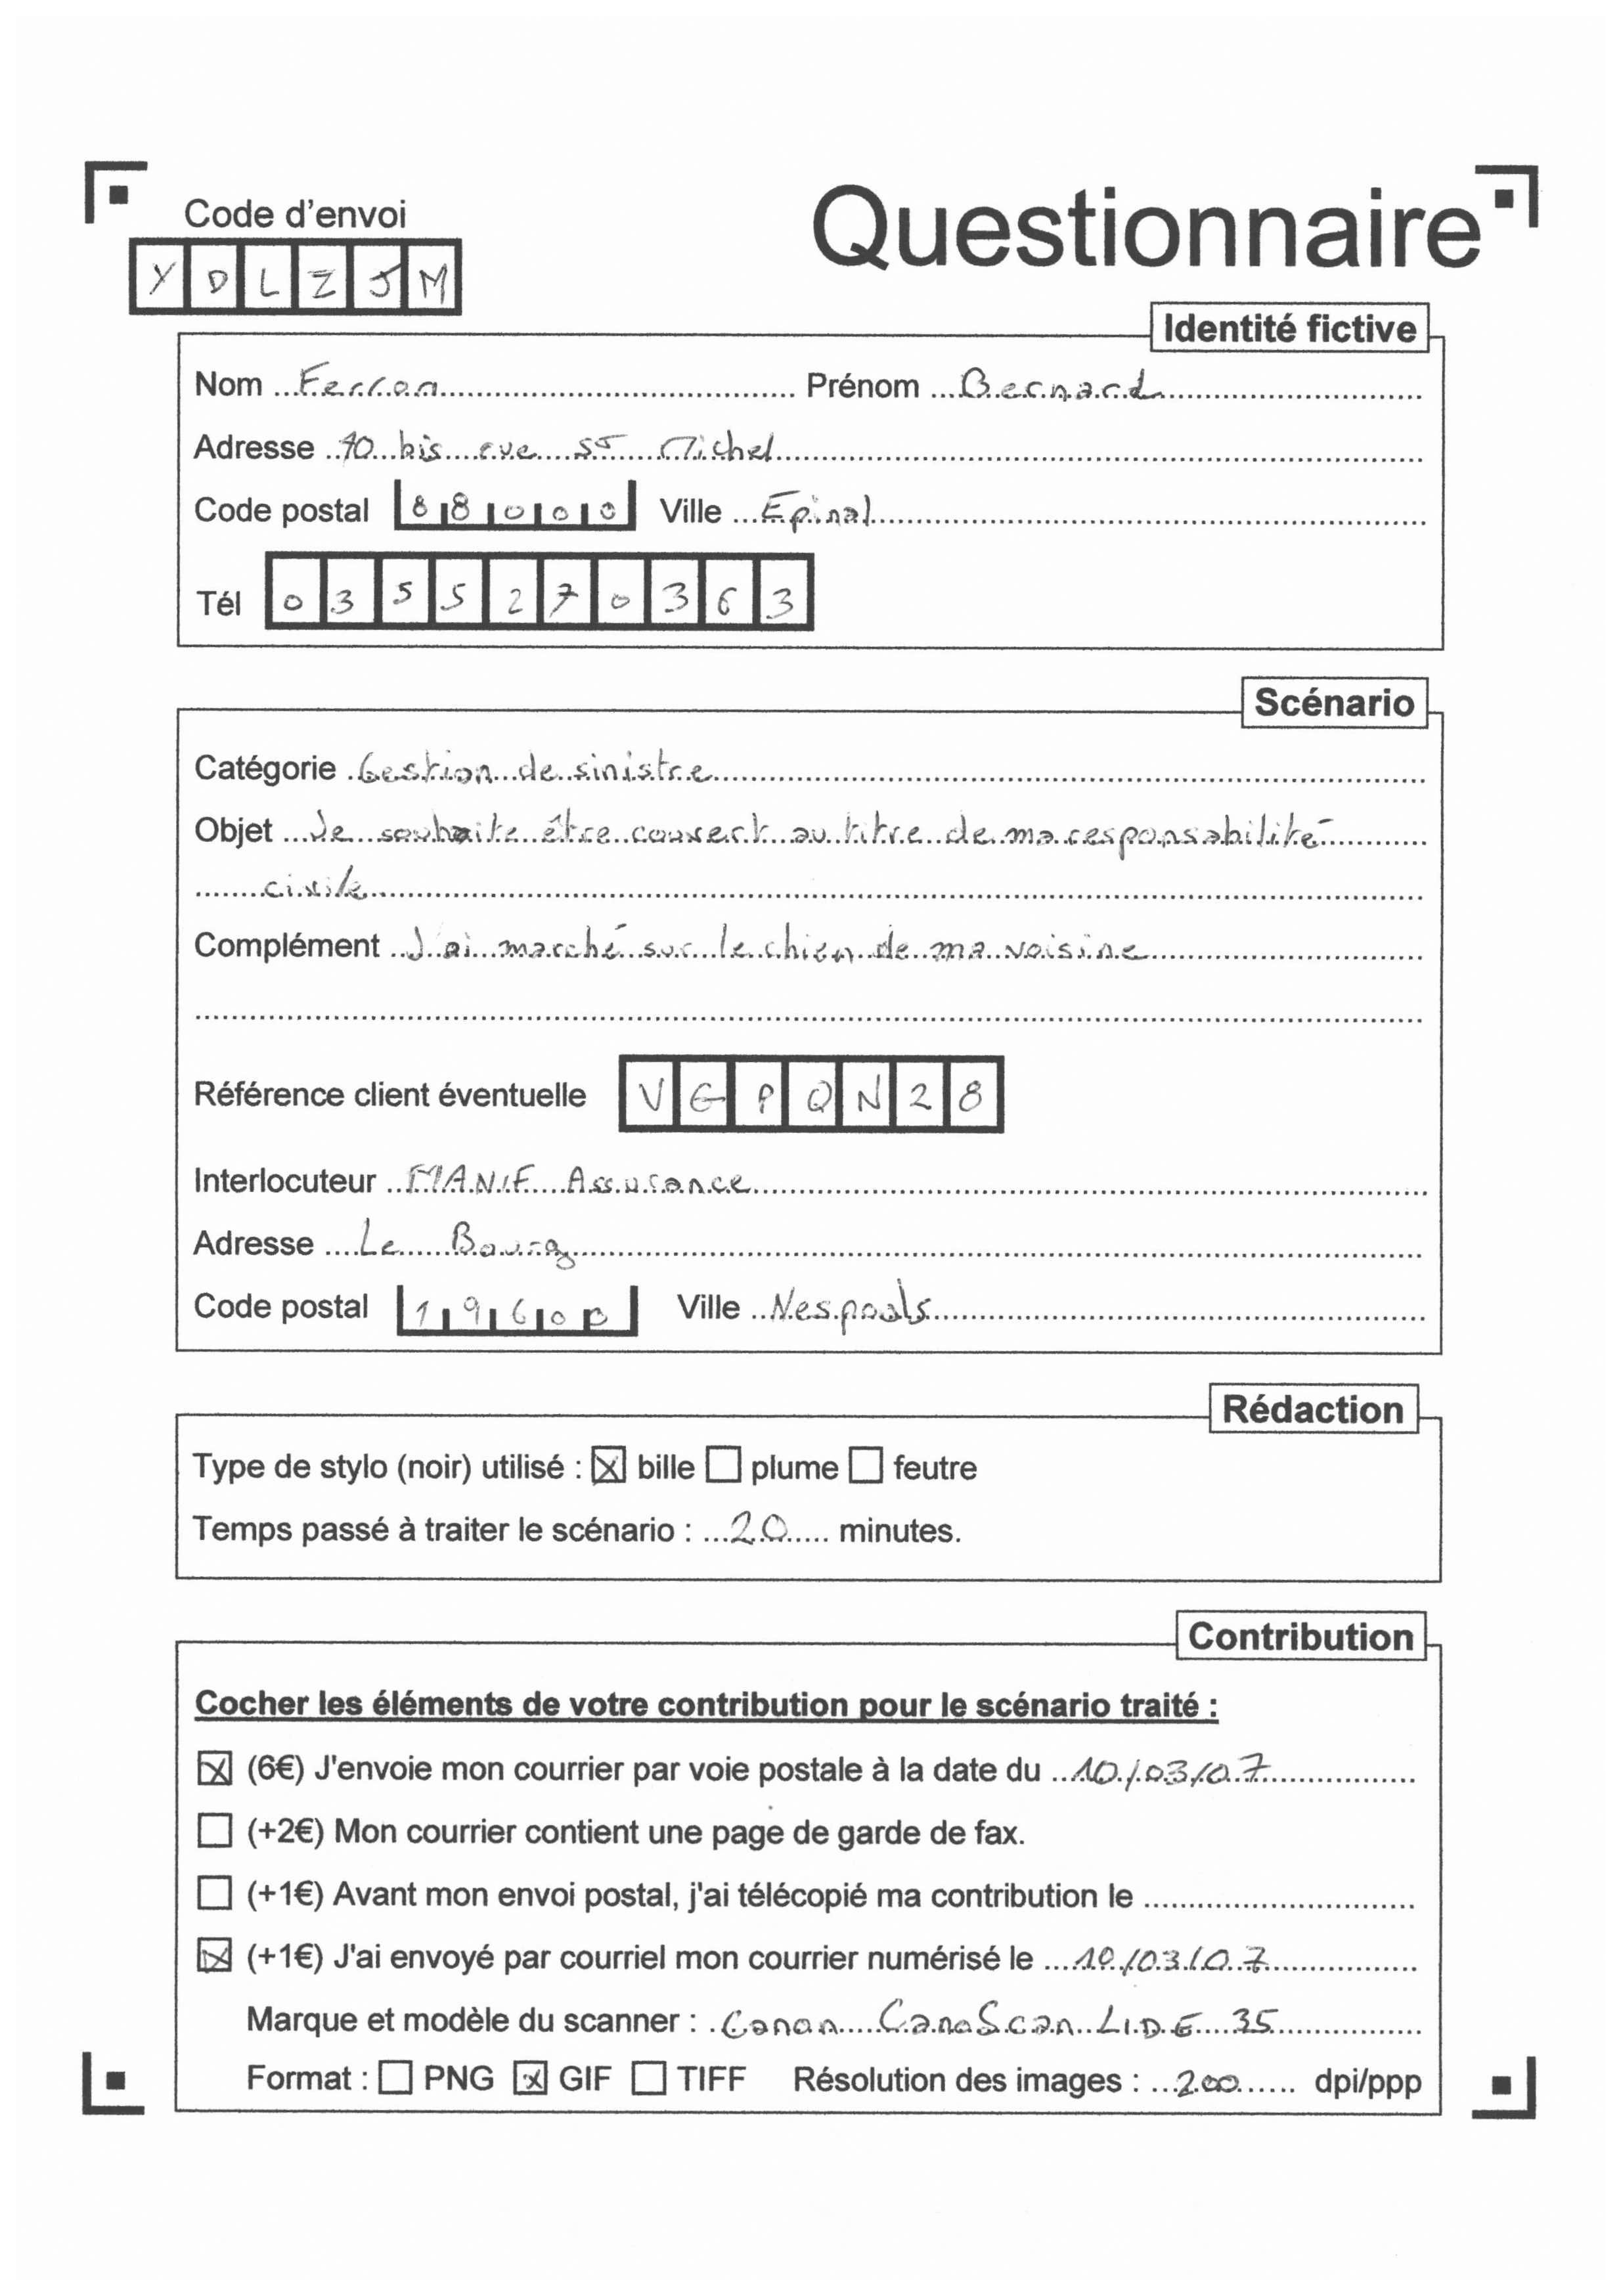 Code d'envoi
Questionnaire
Y D L Z J M
Identité fictive
Nom Ferron Prénom Bernard
Adresse 10 bis rue St Michel
Code postal 88000 Ville Epinal
Tél 0355270363
Scénario
Catégorie Gestion de sinistre
Objet Je souhaite être couvert au titre de ma responsabilité
civile
Complément J'ai marché sur le chien de ma voisine
Référence client éventuelle VGPQN28
Interlocuteur MANIF Assurance
Adresse Le Bourg
Code postal 19600 Ville Nespouls
Rédaction
Type de stylo (noir) utilisé : ☒ bille ☐ plume ☐ feutre
Temps passé à traiter le scénario : 20 minutes.
Contribution
Cocher les éléments de votre contribution pour le scénario traité :
☒ (6€) J'envoie mon courrier par voie postale à la date du 10/03/07
☐ (+2€) Mon courrier contient une page de garde de fax.
☐ (+1€) Avant mon envoi postal, j'ai télécopié ma contribution le
☒ (+1€) J'ai envoyé par courriel mon courrier numérisé le 10/03/07
Marque et modèle du scanner : Canon CanoScan LIDE 35
Format : ☐ PNG ☒ GIF ☐ TIFF Résolution des images : 200 dpi/ppp